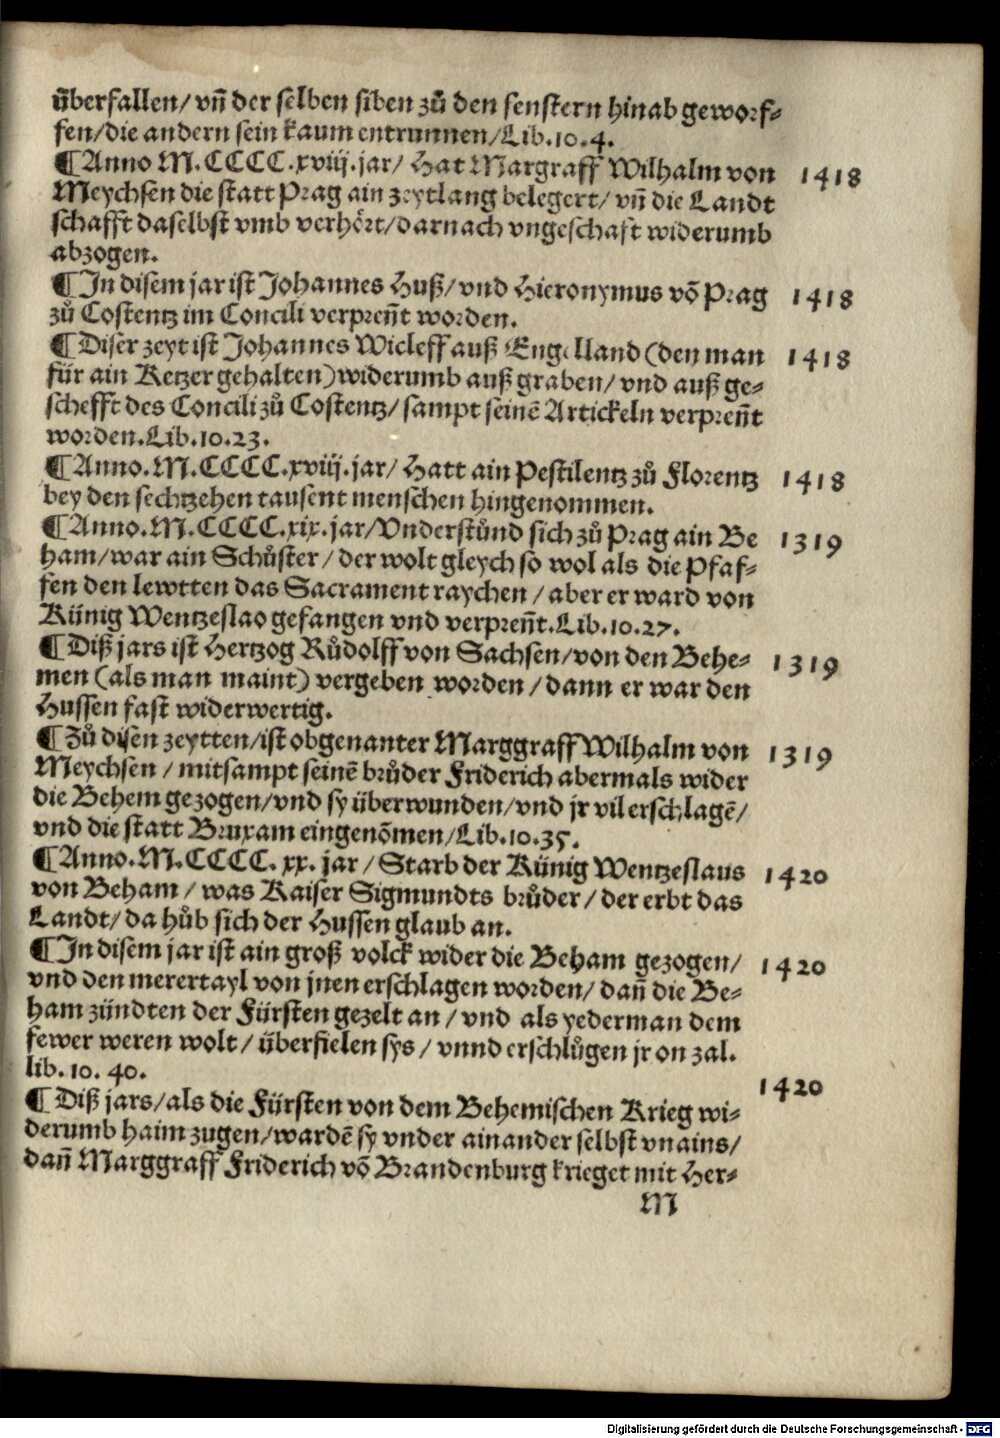 überfallen/ vñ der selben siben zů den senstern hinab geworf-
fen/die andern sein kaum entrunnen/Lib.10.4.
¶Anno M.CCCC.xviij.jar/ Hat Margraff Wilhalm von 1418
Meychsen die statt Prag ain zeytlang belegert/ vñ die Landt
schafft daselbst vmb verhört/darnach vngeschaft widerumb
abzogen.
¶In disem jar ist Johannes Huß/ vnd Hieronymus võ Prag 1418
zů Costentz im Concili verpreñt worden.
¶Diser zeyt ist Johannes Wicleff auß Engelland (den man 1418
für ain Ketzer gehalten)widerumb auß graben/ vnd auß ge-
schefft des Concili zů Costentz/ sampt seinẽ Artickeln verpreñt
worden.Lib.10.23.
¶Anno.M.CCCC.xviij.jar/ Hatt ain Pestilentz zů Florentz 1418
bey den sechtzehen tausent menschen hingenommen.
¶Anno.M.CCCC.xix.jar/Vnderstůnd sich zů Prag ain Be 1319
ham/war ain Schůster/ der wolt gleych so wol als die Pfaf-
fen den lewtten das Sacrament raychen/ aber er ward von
Künig Wentzeslao gefangen vnd verpreñt.Lib.10.27.
¶Diß jars ist Hertzog Růdolff von Sachsen/von den Behe- 1319
men (als man maint) vergeben worden/dann er war den
Hussen fast widerwertig.
¶Zů disen zeytten/ist obgenanter Marggraff Wilhalm von 1319
Meychsen/ mitsampt seinẽ brůder Friderich abermals wider
die Behem gezogen/vnd sy überwunden/vnd jr vil erschlagẽ/
vnd die statt Bruxam eingenõmen/Lib.10.35.
¶Anno.M.CCCC. xx. jar/ Starb der Künig Wentzeslaus 1420
von Beham/ was Kaiser Sigmundts brůder/ der erbt das
Landt/ da hůb sich der Hussen glaub an.
¶In disem jar ist ain groß volck wider die Beham gezogen/ 1420
vnd den merertayl von jnen erschlagen worden/ dañ die Be-
ham zündten der Fürsten gezelt an/ vnd als yederman dem
fewer weren wolt/ überfielen sys/ vnnd erschlůgen jr on zal.
lib. 10. 40.
¶Diß jars/als die Fürsten von dem Behemischen Krieg wi- 1420
derumb haim zugen/wardẽ sy vnder ainander selbst vnains/
dañ Marggraff Friderich võ Brandenburg krieget mit Her-
M
Digitalisierung gefördert durch die Deutsche Forschungsgemeinschaft - DFG